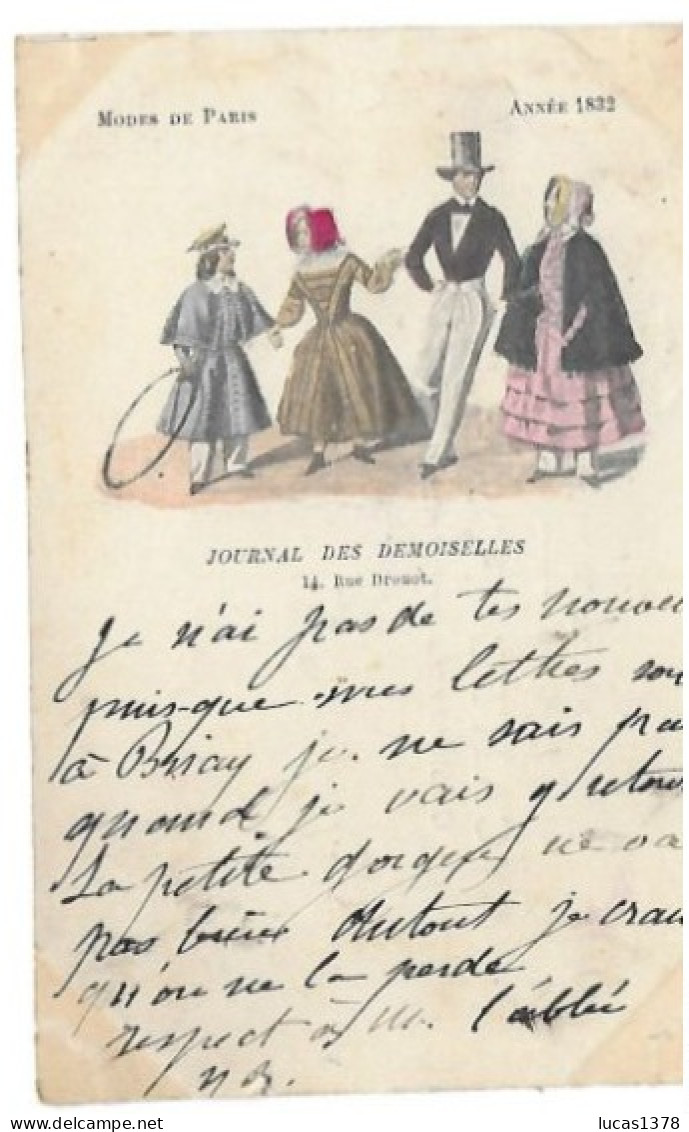 MODES DE PARIS
ANNÉE 1832
JOURNAL DES DEMOISELLES
14, Rue Drouot.
Je n'ai pas de tes nouve
puis-que mes lettres son
à Briay je ne sais pa
quand je vais y retou
La petite ne va
pas bien surtout je crai
qu'on ne la perde
respect à M. l'abbé
lucas1378